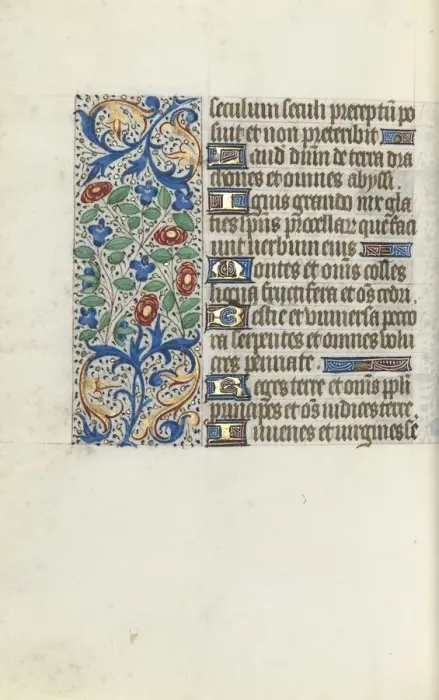 seculum seculi preceptū po
suit et non preteribit
Laud dūm de terra dra
cones et omnes abyssi.
Ignis grando nix gla
cies spūs procellar que faci
unt uerbum eius
Montes et omīs colles
ligna fructifera et oēs cedri.
Bestie et vuniuersa peco
ra serpentes et omnes volu
cres pennate
Reges terre et omīs ppli
principes et oēs iudices terre.
Iuuenes et uirgines se